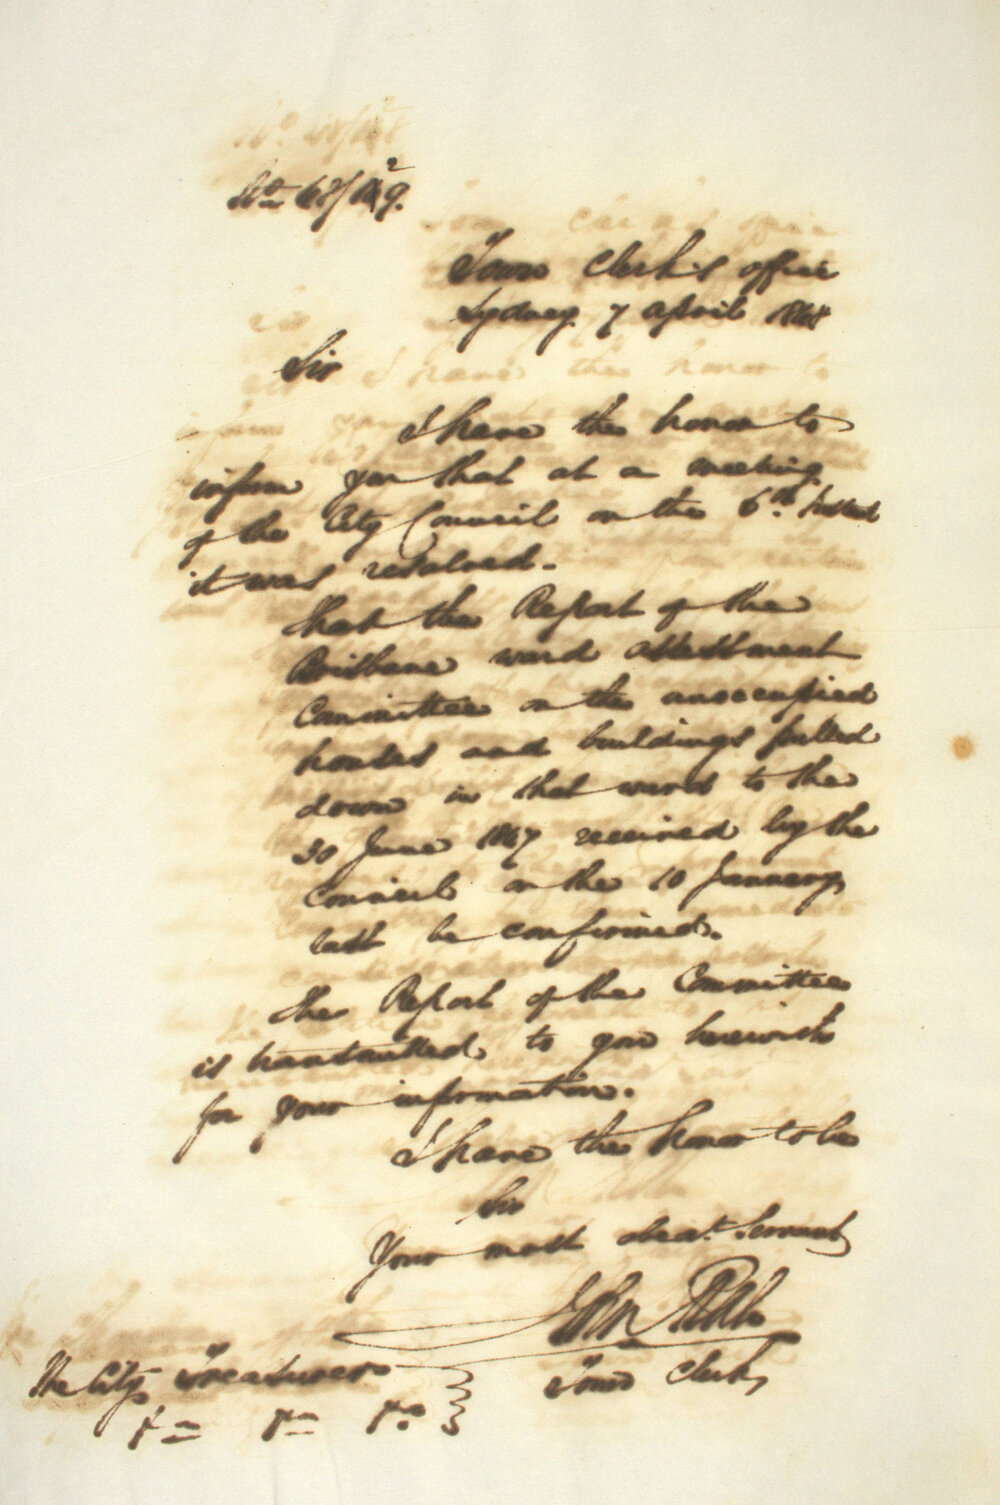 Town Clerk's office
Sydney 7 April 1868
Sir
I have the honor to
inform you that at a meeting
of the City Council on the 6th Instant
it was resolved.
That the Report of the
Brisbane ward assessment
Committee on the unoccupied
houses and buildings pulled
down in that ward to the
30 June 1867 received by the
Council on the 10 January
last be confirmed.
The Report of the Committee
is transmitted to you herewith
for your information.
I have the honor to be
Sir
Your most obedt. Servant
John
Town Clerk
The City Treasurer